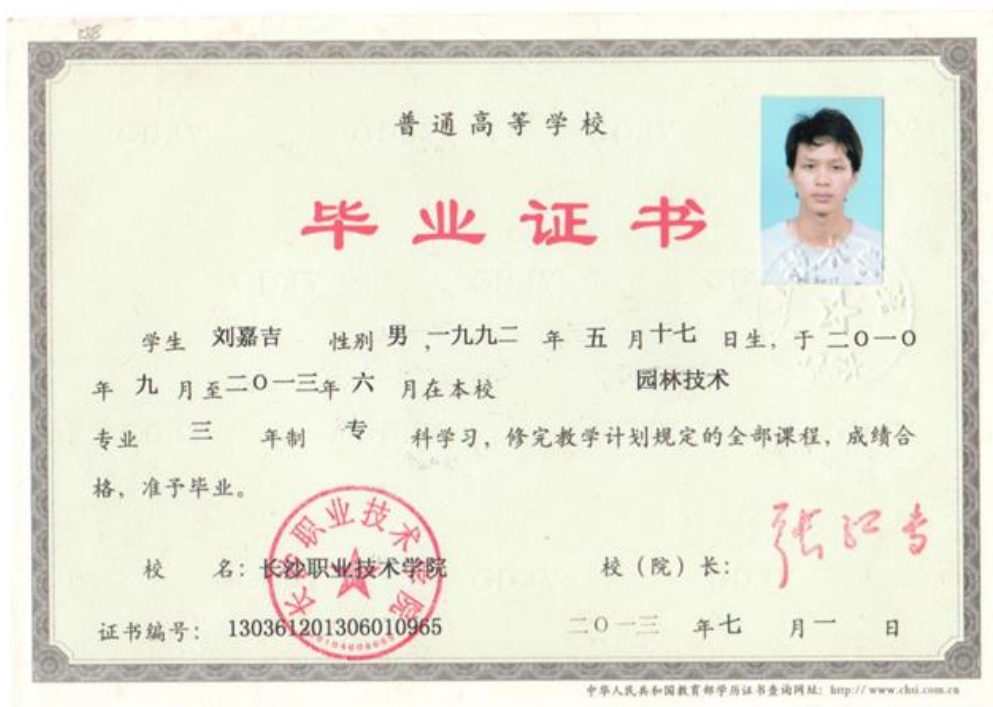 普通高等学校
毕业证书
学生 刘嘉吉 性别 男 ,一九九二 年 五 月 十七 日生, 于 二〇一〇
年 九 月至 二〇一三年 六 月在本校 园林技术
专业 三 年制 专 科学习, 修完教学计划规定的全部课程, 成绩合
格, 准予毕业。
长沙职业技术学院
校 名: 长沙职业技术学院 校(院)长:
证书编号: 130361201306010965 二〇一三 年七 月一 日
中华人民共和国教育部学历证书查询网址: http://www.chsi.com.cn